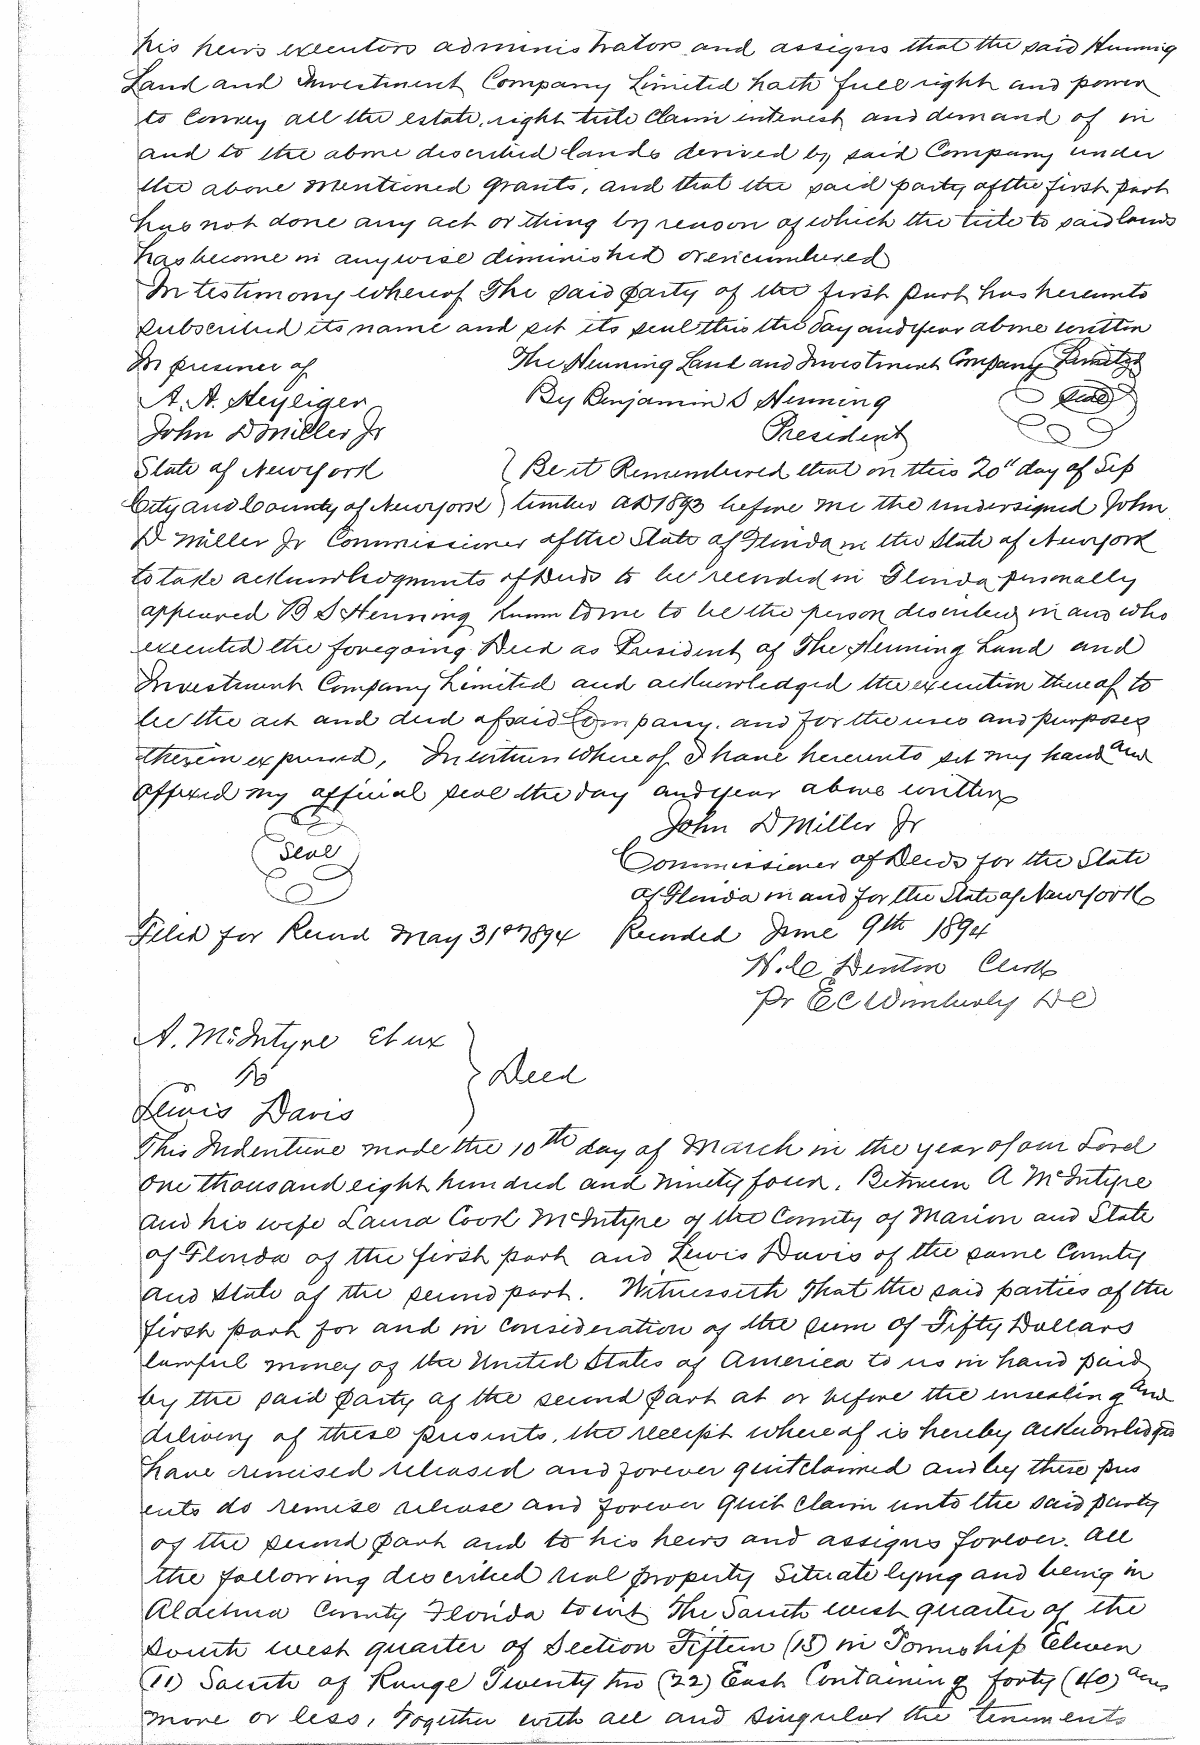 his heirs executors administrators and assigns that the said Henning
Land and Investment Company Limited hath full right and power
to convey all the estate, right title claim interest and demand of in
and to the above described lands derived by said Company under
the above mentioned grants, and that the said party of the first part
has not done any act or thing by reason of which the title to said lands
has become in any wise diminished or encumbered
In testimony whereof The said party of the first part has hereunto
subscribed its name and set its seal this the day and year above written
In presence of The Henning Land and Investment Company Limited
A. A. Heyliger By Benjamin S Henning Seal
John D Miller Jr President
State of New York } Be it Remembered that on this 20th day of Sep
City and County of New York } tember AD 1893 before me the undersigned John
D Miller Jr Commissioner of the State of Florida in the State of New York
to take acknowledgments of Deeds to be recorded in Florida personally
appeared B S Henning known to me to be the person described in and who
executed the foregoing Deed as President of The Henning Land and
Investment Company Limited and acknowledged the execution thereof to
be the act and deed of said Company. and for the uses and purposes
therein expressed, In witness whereof I have hereunto set my hand and
affixed my official seal the day and year above written
John D Miller Jr
Seal Commissioner of Deeds for the State
of Florida in and for the State of New York
Filed for Record May 31st 1894 Recorded June 9th 1894
N. C. Denton Clerk
Pr E C Wimberly D C
A. McIntyre Et ux
to } Deed
Lewis Davis
This Indenture made the 10th day of March in the year of our Lord
one thousand eight hundred and ninety four. Between A McIntyre
and his wife Laura Cook McIntyre of the County of Marion and State
of Florida of the first part and Lewis Davis of the same County
and State of the second part. Witnesseth That the said parties of the
first part for and in consideration of the sum of Fifty Dollars
lawful money of the United States of America to us in hand paid
by the said party of the second part at or before the ensealing and
delivery of these presents, the receipt whereof is hereby acknowledged
have remised released and forever quitclaimed and by these pres
ents do remise release and forever quit claim unto the said party
of the second part and to his heirs and assigns forever. all
the following described real property Situate lying and being in
Alachua County Florida to wit The South west quarter of the
South west quarter of Section Fifteen (15) in Township Eleven
(11) South of Range Twenty two (22) East Containing forty (40) acres
more or less, Together with all and singular the tenements